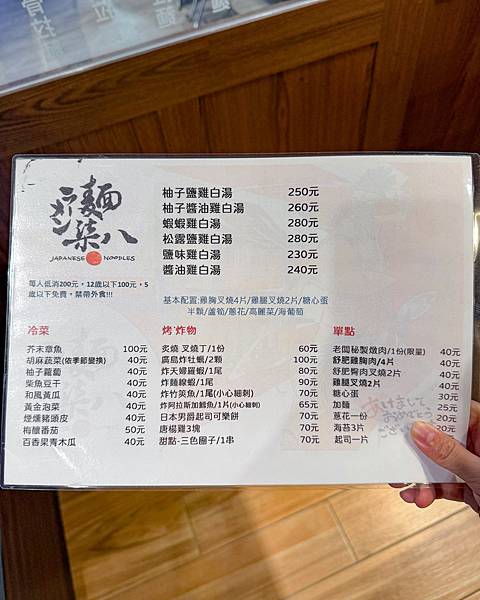 ラーメン
麵
柒八
JAPANESE NOODLES
每人低消200元，12歲以下100元，5
歲以下免費，禁帶外食!!!
柚子鹽雞白湯 250元
柚子醬油雞白湯 260元
蝦蝦雞白湯 280元
松露鹽雞白湯 280元
鹽味雞白湯 230元
醬油雞白湯 240元
基本配置:雞胸叉燒4片/雞腿叉燒2片/糖心蛋
半顆/蘆筍/蔥花/高麗菜/海葡萄
冷菜
芥末章魚 100元
胡麻蔬菜(依季節變換) 40元
柚子蘿蔔 40元
柴魚豆干 40元
和風黃瓜 40元
黃金泡菜 40元
煙燻豬頭皮 40元
梅釀番茄 50元
百香果青木瓜 40元
烤‧炸物
炙燒 叉燒丁/1份 60元
廣島炸牡蠣/2顆 100元
炸天婦羅蝦/1尾 80元
炸麵線蝦/1尾 90元
炸竹莢魚/1尾(小心細刺) 70元
炸阿拉斯加鱈魚/1片(小心細刺) 65元
日本男爵起司可樂餅 70元
唐楊雞3塊 70元
甜點-三色團子/1串 70元
單點
老闆秘製燉肉/1份(限量) 40元
舒肥雞胸肉/4片 40元
舒肥臀肉叉燒2片 40元
雞腿叉燒2片 40元
糖心蛋 30元
加麵 25元
蔥花一份 20元
海苔3片 20元
起司一片